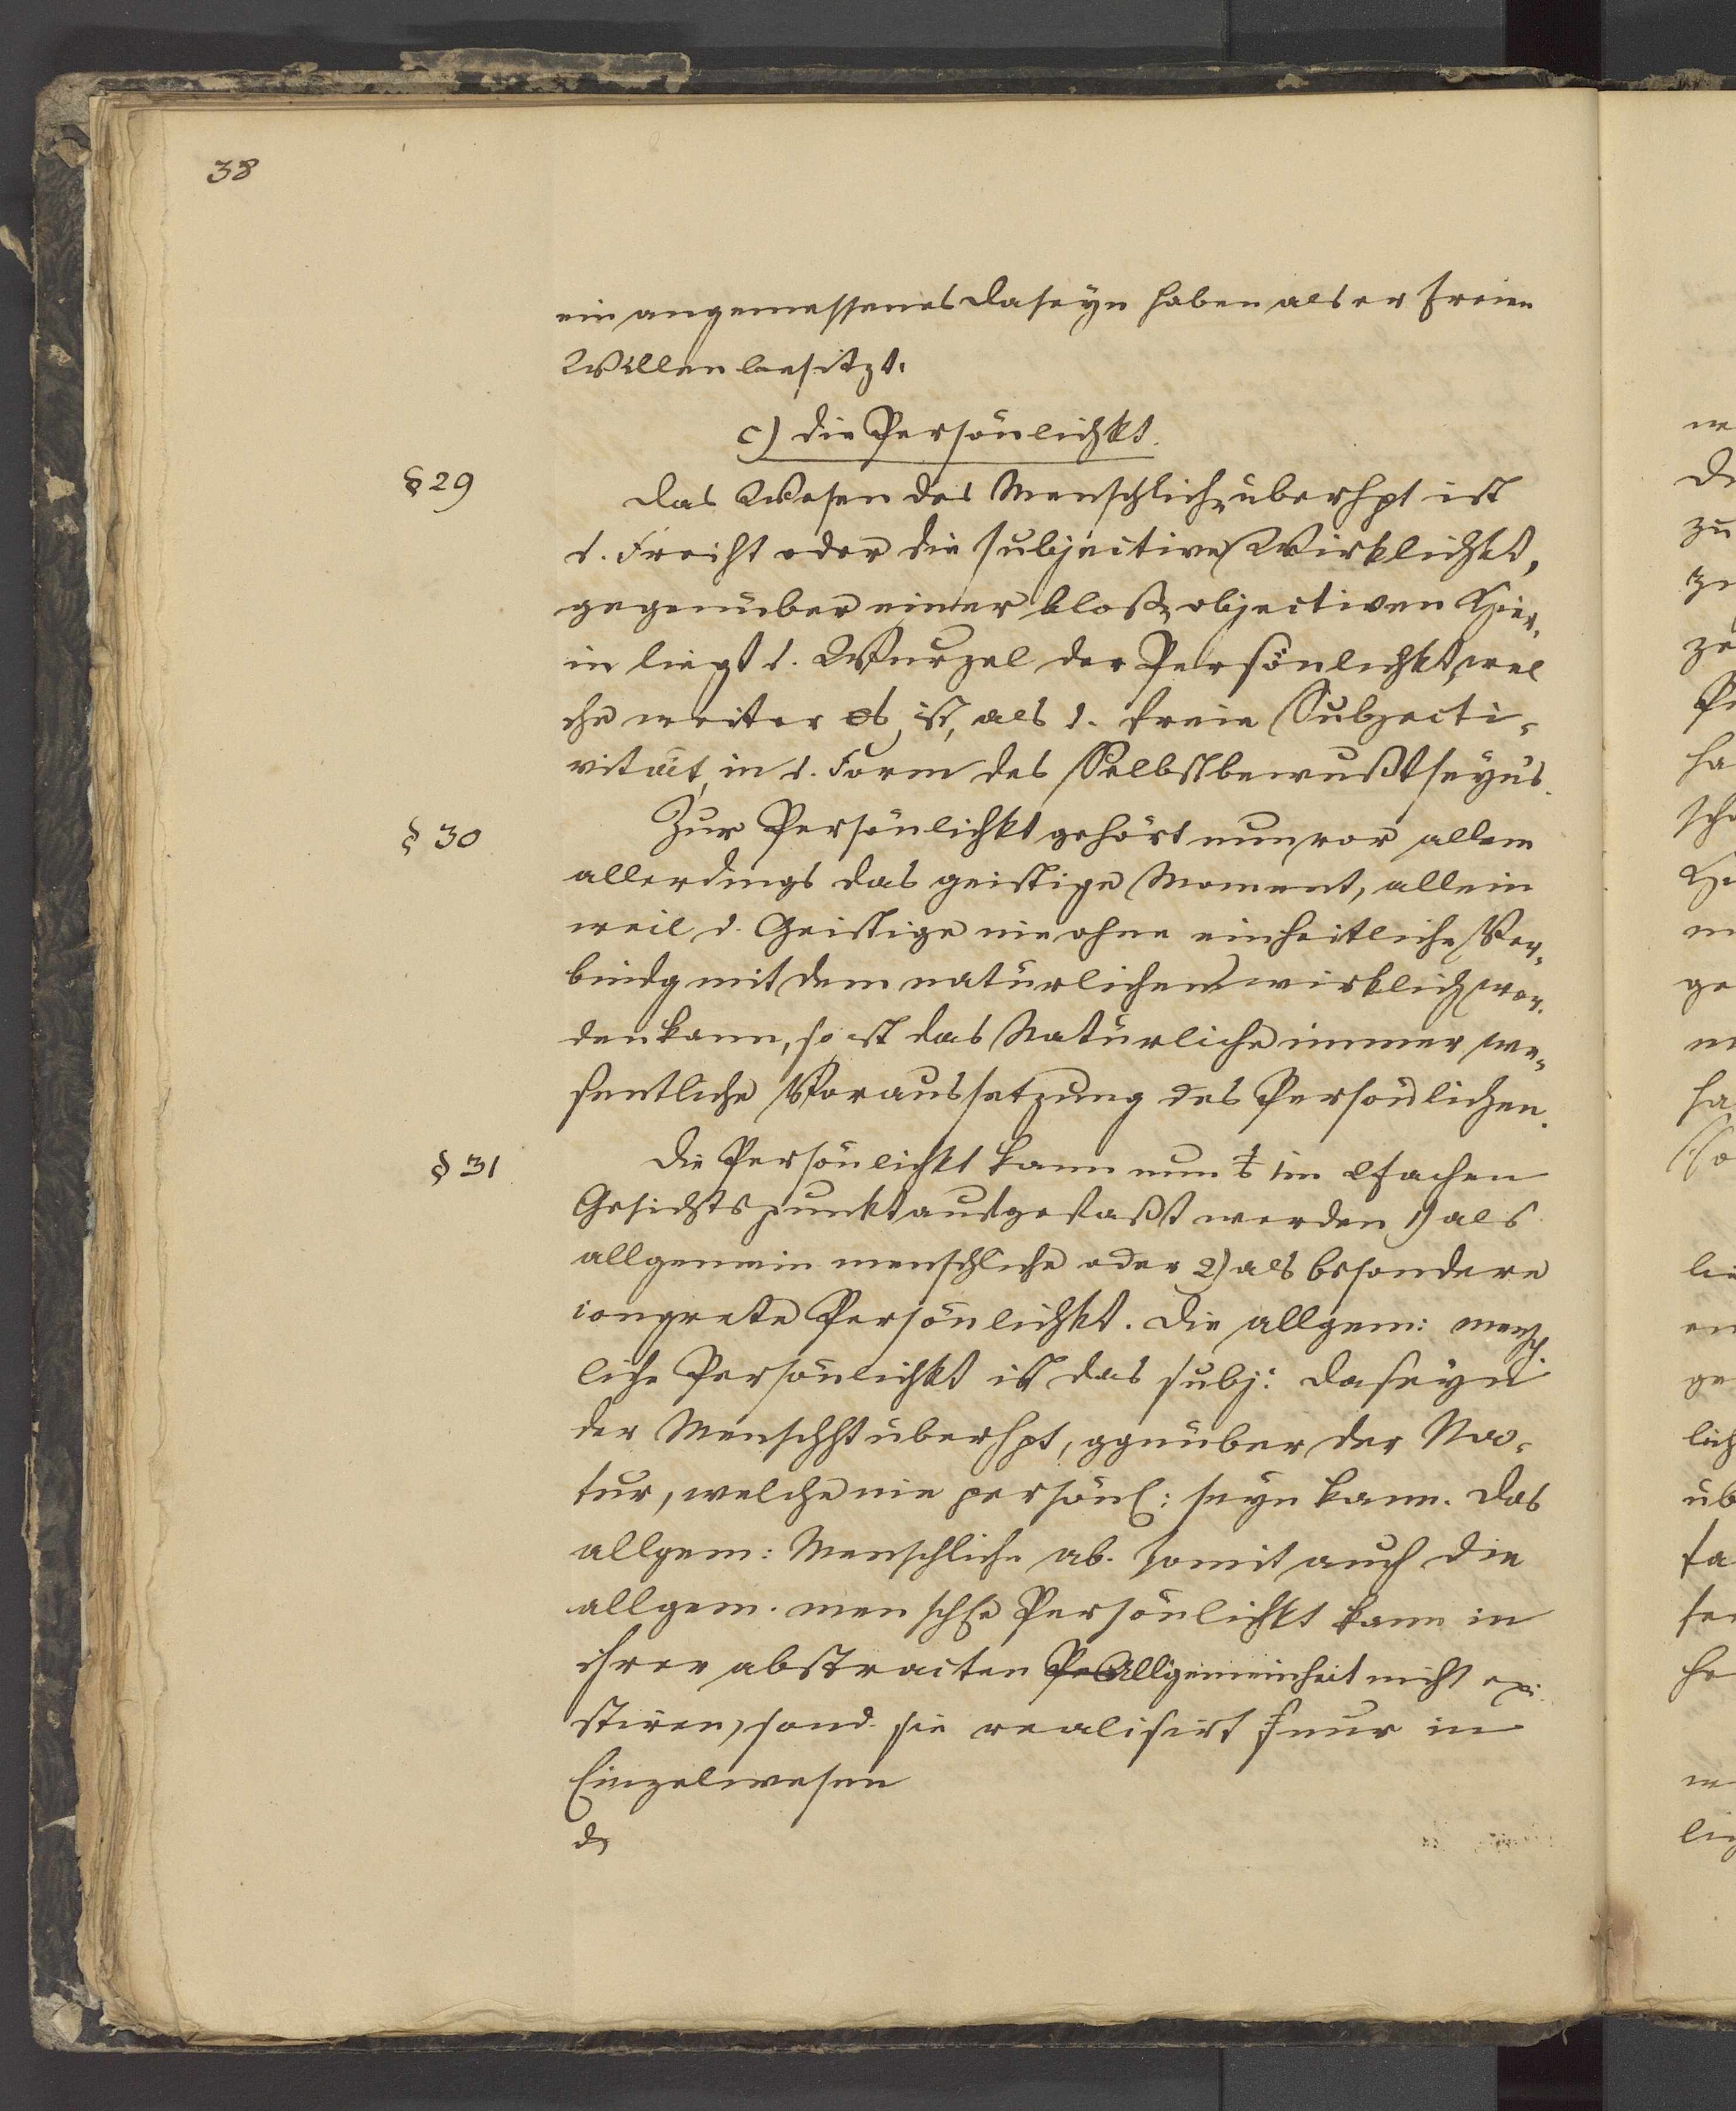 38
ein angemessenes Daseyn haben als er freien
Willen besitzt.
c) die Persönlichkt.
§ 29
Das Wesen des Menschlich überhpt ist
d. Freiht oder die subjective Wirklichkt,
gegenüber einer bloß objectiven Hier-
in liegt d. Wurzel der Persönlichkt, wel
che weiter ist, als d. freie Subjecti-
vität, in d. Form des Selbstbewußtseyns.
§ 30
Zur Persönlichkt gehört nun vor allem
allerdings das geistige Moment, allein
weil d. Geistige nie ohne einheitliche Ver-
bindg mit dem natürlichen wirklich wer-
den kann, so ist das Natürliche immer we-
sentliche Voraussetzung des Persönlichen.
§ 31
Die Persönlichkt kann nun im 2fachen
Gesichtspunkt aufgefaßt werden 1) als
allgemein menschliche oder 2) als besondere
congrete Persönlichkt. Die allgem: mensch-
liche Persönlichkt ist das subj: Daseyn
der Menschht überhpt, ggnüber der Na-
tur, welche nie persönl: seyn kann. Das
allgem: Menschliche ab. somit auch die
allgem. menschle Persönlichkt kann in
ihrer abstracten Pe Allgemeinheit nicht exi-
stiren, sond. sie realisirt nur in
Einzelwesen
d